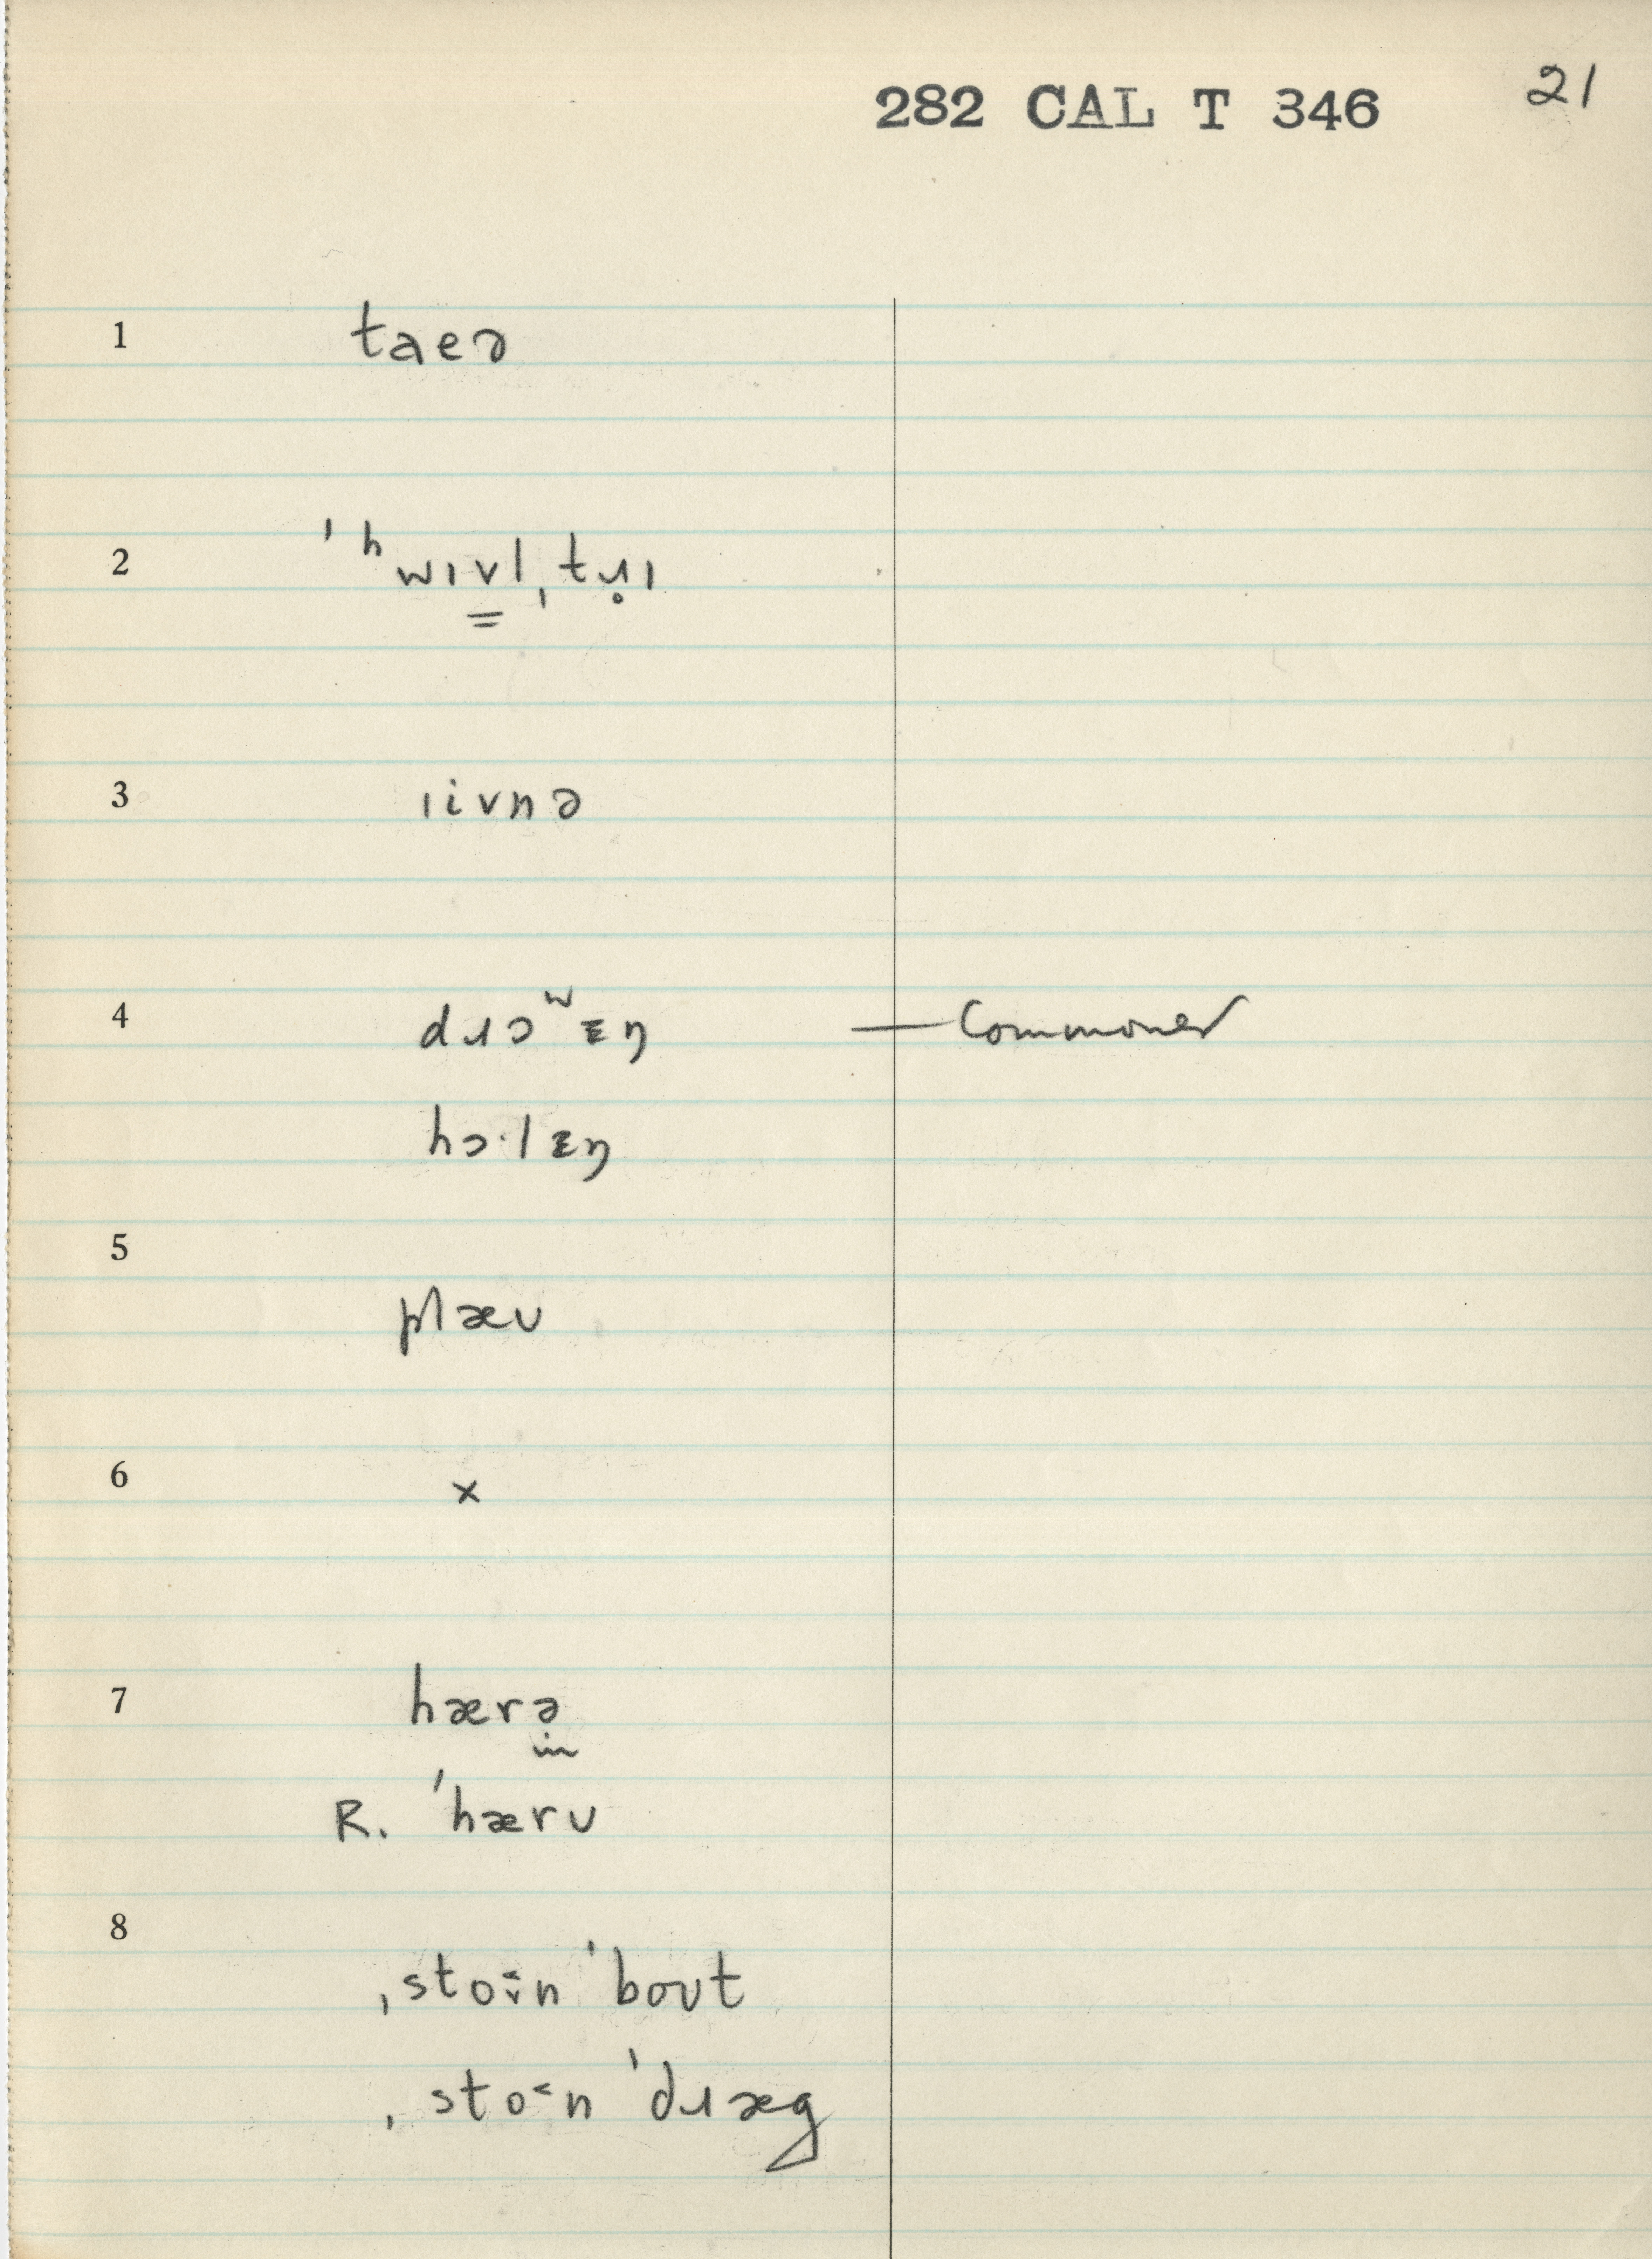 282 CAL T 346 21
1 taeə
2 ˈʰwɪv̳lˌtɹ̥ɪ
3 ɪivnə
4 dɹɔʷɛŋ — Commoner
hɔ·lɛŋ
5
plæʊ
6 ×
7 hærə̣
R. ˈhærʊ
8
ˌstoːn ˈboʊt
ˌstoːn ˈdɹæg